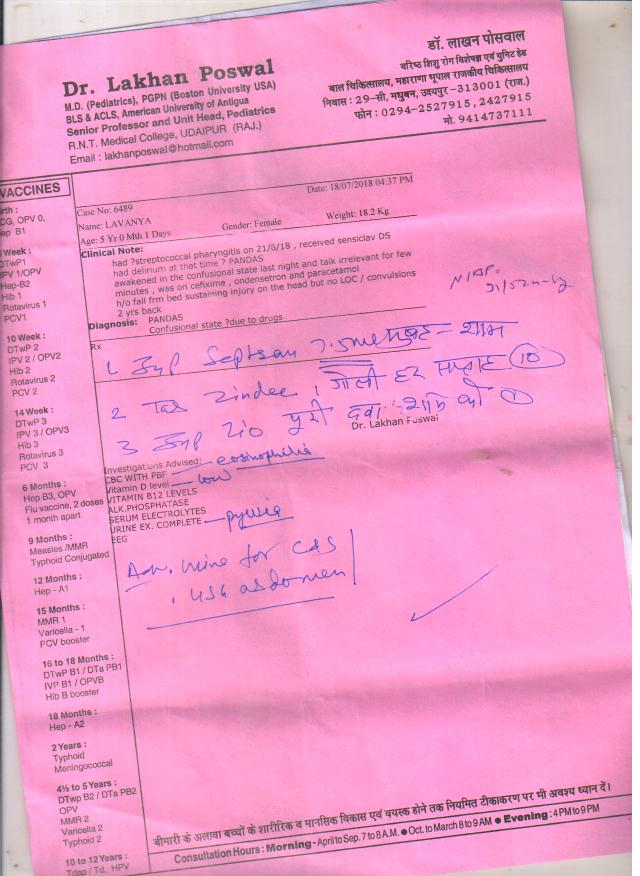 Dr. Lakhan Poswal
M.D. (Pediatrics), PGPN (Boston University USA)
BLS & ACLS, American University of Antigua
Senior Professor and Unit Head, Pediatrics
R.N.T. Medical College, UDAIPUR (RAJ.)
Email : lakhanposwal@hotmail.com
डॉ. लाखन पोसवाल
वरिष्ठ शिशु रोग विशेषज्ञ एवं युनिट हेड
बाल चिकित्सालय, महाराणा भूपाल राजकीय चिकित्सालय
निवास : 29-सी, मधुबन, उदयपुर-313001 (राज.)
फोन : 0294-2527915, 2427915
मो. 9414737111
VACCINES
rth :
CG, OPV 0,
ep B1
Week :
DTwP1
IPV 1/OPV
Hep-B2
Hib 1
Rotavirus 1
PCV1
10 Week :
DTwP 2
IPV 2 / OPV2
Hib 2
Rotavirus 2
PCV 2
14 Week :
DTwP 3
IPV 3 / OPV3
Hib 3
Rotavirus 3
PCV 3
6 Months :
Hep B3, OPV
Flu vaccine, 2 doses
1 month apart
9 Months :
Measles /MMR
Typhoid Conjugated
12 Months :
Hep - A1
15 Months :
MMR 1
Varicella - 1
PCV booster
16 to 18 Months :
DTwP B1 / DTa PB1
IVP B1 / OPVB
Hib B booster
18 Months :
Hep - A2
2 Years :
Typhoid
Meningococcal
4½ to 5 Years :
DTwp B2 / DTa PB2
OPV
MMR 2
Varicella 2
Typhoid 2
10 to 12 Years :
Tdap / Td, HPV
Date: 18/07/2018 04:37 PM
Case No: 6489
Name: LAVANYA
Gender: Female
Weight: 18.2 Kg
Age: 5 Yr 0 Mth 1 Days
Clinical Note:
had ?streptococcal pharyngitis on 21/5/18 , received sensiclav DS
had delirium at that time ? PANDAS
awakened in the confusional state last night and talk irrelevant for few
minutes , was on cefixime , ondensetron and paracetamol
h/o fall frm bed sustaining injury on the head but no LOC / convulsions
2 yrs back
Diagnosis: PANDAS
Confusional state ?due to drugs
Rx
1 Syp Septran 7.5ml सुबह - शाम
2 Tab 1 गोली हर सप्ताह 10
3 Syp पूरी दवा रात्रि को 1
Dr. Lakhan Poswal
Investigations Advised:
CBC WITH PBF - eosinophilia
Vitamin D level - low
VITAMIN B12 LEVELS
ALK.PHOSPHATASE
SERUM ELECTROLYTES
URINE EX. COMPLETE - pyuria
EEG
Adv. urine for C&S
, USG abdomen
बीमारी के अलावा बच्चों के शारीरिक व मानसिक विकास एवं वयस्क होने तक नियमित टीकाकरण पर भी अवश्य ध्यान दें।
Consultation Hours : Morning - April to Sep. 7 to 8 A.M. ● Oct. to March 8 to 9 AM ● Evening : 4 PM to 9 PM